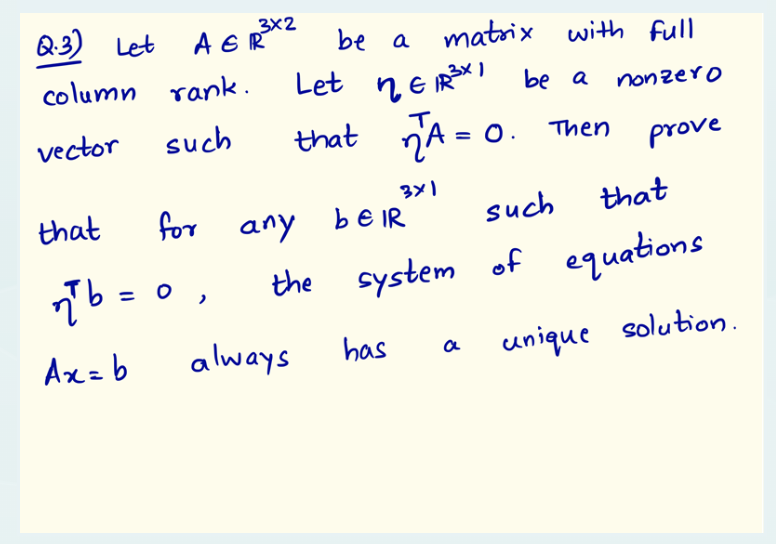 Q.3) Let A ∈ ℝ^{3×2} be a matrix with full
column rank. Let η ∈ ℝ^{3×1} be a nonzero
vector such that η^T A = 0. Then prove
that for any b ∈ ℝ^{3×1} such that
η^T b = 0, the system of equations
Ax = b always has a unique solution.